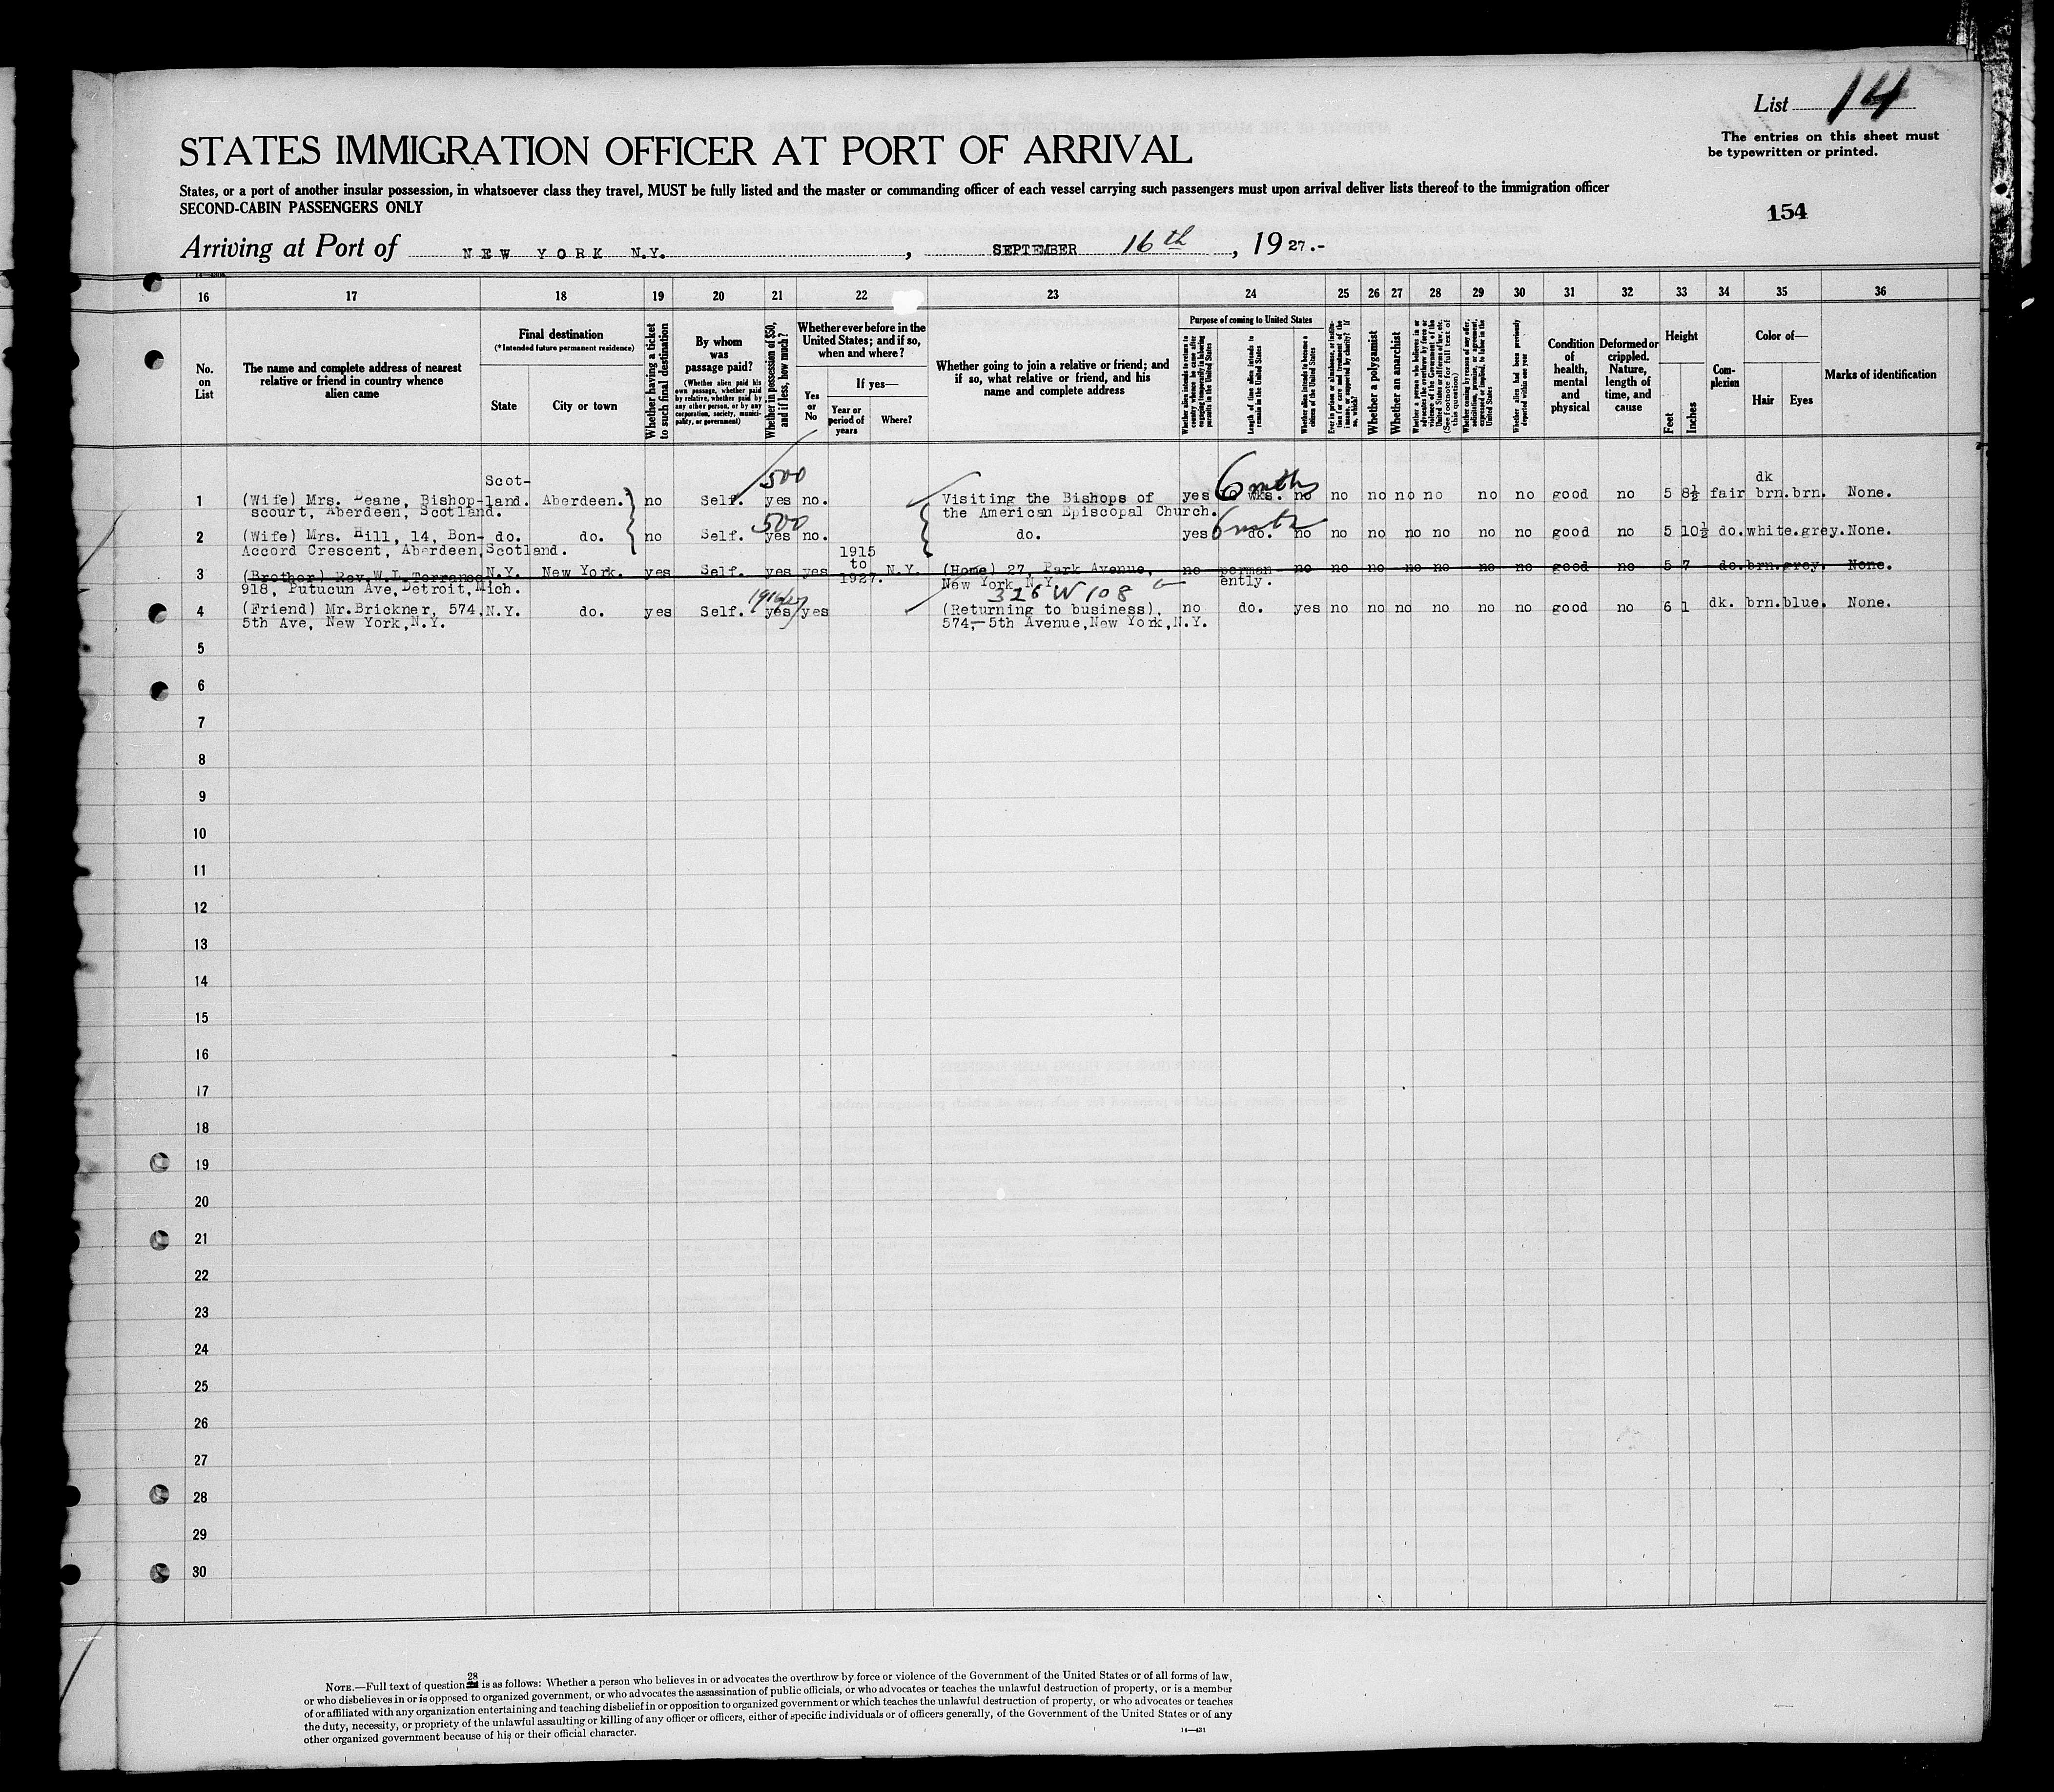 List 14
The entries on this sheet must
be typewritten or printed.
STATES IMMIGRATION OFFICER AT PORT OF ARRIVAL
States, or a port of another insular possession, in whatsoever class they travel, MUST be fully listed and the master or commanding officer of each vessel carrying such passengers must upon arrival deliver lists thereof to the immigration officer
SECOND-CABIN PASSENGERS ONLY
154
Arriving at Port of NEW YORK N.Y. , SEPTEMBER 16th , 1927.-
16 17 18 19 20 21 22 23 24 25 26 27 28 29 30 31 32 33 34 35 36
No. on List
The name and complete address of nearest relative or friend in country whence alien came
Final destination
(*Intended future permanent residence)
State
City or town
Whether having a ticket to such final destination
By whom was passage paid?
(Whether alien paid his own passage, whether paid by relative, whether paid by any other person, or by any corporation, society, municipality, or government)
Whether in possession of $50, and if less, how much?
Whether ever before in the United States; and if so, when and where?
Yes or No
If yes—
Year or period of years
Where?
Whether going to join a relative or friend; and if so, what relative or friend, and his name and complete address
Purpose of coming to United States
Whether alien intends to return to country whence he came after engaging temporarily in laboring pursuits in the United States
Length of time alien intends to remain in the United States
Whether alien intends to become a citizen of the United States
Whether a polygamist
Whether an anarchist
Whether alien had been previously deported within one year
Condition of health, mental and physical
Deformed or crippled. Nature, length of time, and cause
Height
Feet
Inches
Complexion
Color of—
Hair
Eyes
Marks of identification
Scot- 500 6 mths dk
1 (Wife) Mrs. Deane, Bishop- land. Aberdeen. no Self. yes no. Visiting the Bishops of yes wks. no no no no no no no good no 5 8½ fair brn. brn. None.
scourt, Aberdeen, Scotland. the American Episcopal Church.
500 6 mths
2 (Wife) Mrs. Hill, 14, Bon- do. do. no Self. yes no. do. yes do. no no no no no no no good no 5 10½ do. white. grey. None.
Accord Crescent, Aberdeen, Scotland.
1915 to 1927.
3 (Brother) Rev. W.I. Torrance, N.Y. New York. yes Self. yes yes N.Y. (Home) 27, Park Avenue, no perman- no no no no no no no good no 5 7 do. brn. grey. None.
918, Putucun Ave, Detroit, Mich. New York, N.Y. ently.
326 W 108
4 (Friend) Mr. Brickner, 574, N.Y. do. yes Self. yes yes (Returning to business), no do. yes no no no no no no good no 6 1 dk. brn. blue. None.
5th Ave, New York, N.Y. 574,- 5th Avenue, New York, N.Y.
5
6
7
8
9
10
11
12
13
14
15
16
17
18
19
20
21
22
23
24
25
26
27
28
29
30
NOTE.—Full text of question 28 is as follows: Whether a person who believes in or advocates the overthrow by force or violence of the Government of the United States or of all forms of law,
or who disbelieves in or is opposed to organized government, or who advocates the assassination of public officials, or who advocates or teaches the unlawful destruction of property, or is a member
of or affiliated with any organization entertaining and teaching disbelief in or opposition to organized government or which teaches the unlawful destruction of property, or who advocates or teaches
the duty, necessity, or propriety of the unlawful assaulting or killing of any officer or officers, either of specific individuals or of officers generally, of the Government of the United States or of any
other organized government because of his or their official character.
14—431